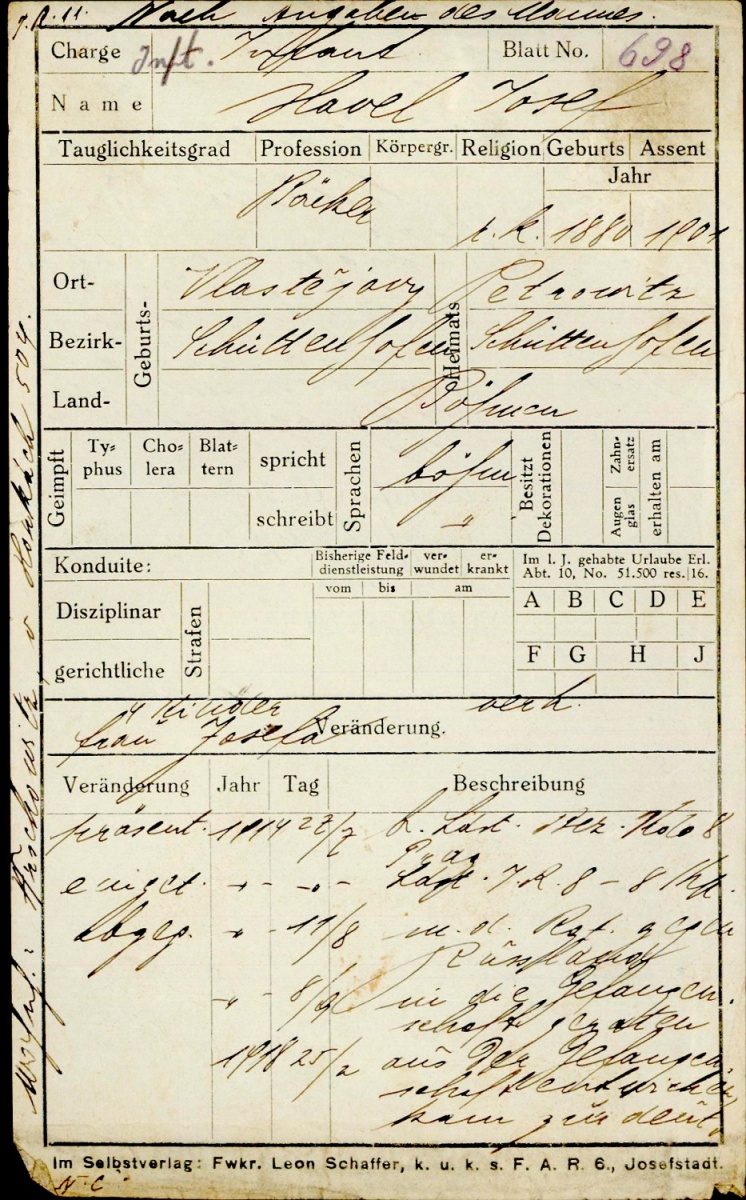 J. R. 11. Nach Angaben des Mannes.
Charge Inft. Infant Blatt No. 698
Name Havel Josef
Tauglichkeitsgrad Profession Körpergr. Religion Geburts Assent
Jahr
Bäcker r. k. 1880 1901
Ort- Vlastějov Petrowitz
Bezirk- Geburts- Schüttenhofen Heimats Schüttenhofen
Land- Böhmen
Geimpft Ty=phus Cho=lera Blat=tern spricht Sprachen böhm Besitzt Dekorationen Zahn-ersatz Augen glas erhalten am
schreibt "
Konduite: Bisherige Feld=dienstleistung ver=wundet er=krankt Im l. J. gehabte Urlaube Erl.
Abt. 10, No. 51.500 res. 16.
vom bis am
Disziplinar Strafen A B C D E
gerichtliche F G H J
4 Kinder verh.
frau Josefa Veränderung.
Veränderung Jahr Tag Beschreibung
präsent. 1914 27/7 k. Ldst. Bez. Kdo 8
Prag
einget. " - " - Ldst. I. R. 8 - 8 Kp.
abgeg. " - 11/8 m. d. Bat. gegen
Russland
" - 8/9 in die Gefangen
schaft geraten
1918 25/2 aus der Gefangen
schaft entwichen
kam zur deut.
Im Selbstverlag: Fwkr. Leon Schaffer, k. u. k. s. F. A. R. 6., Josefstadt.
504.